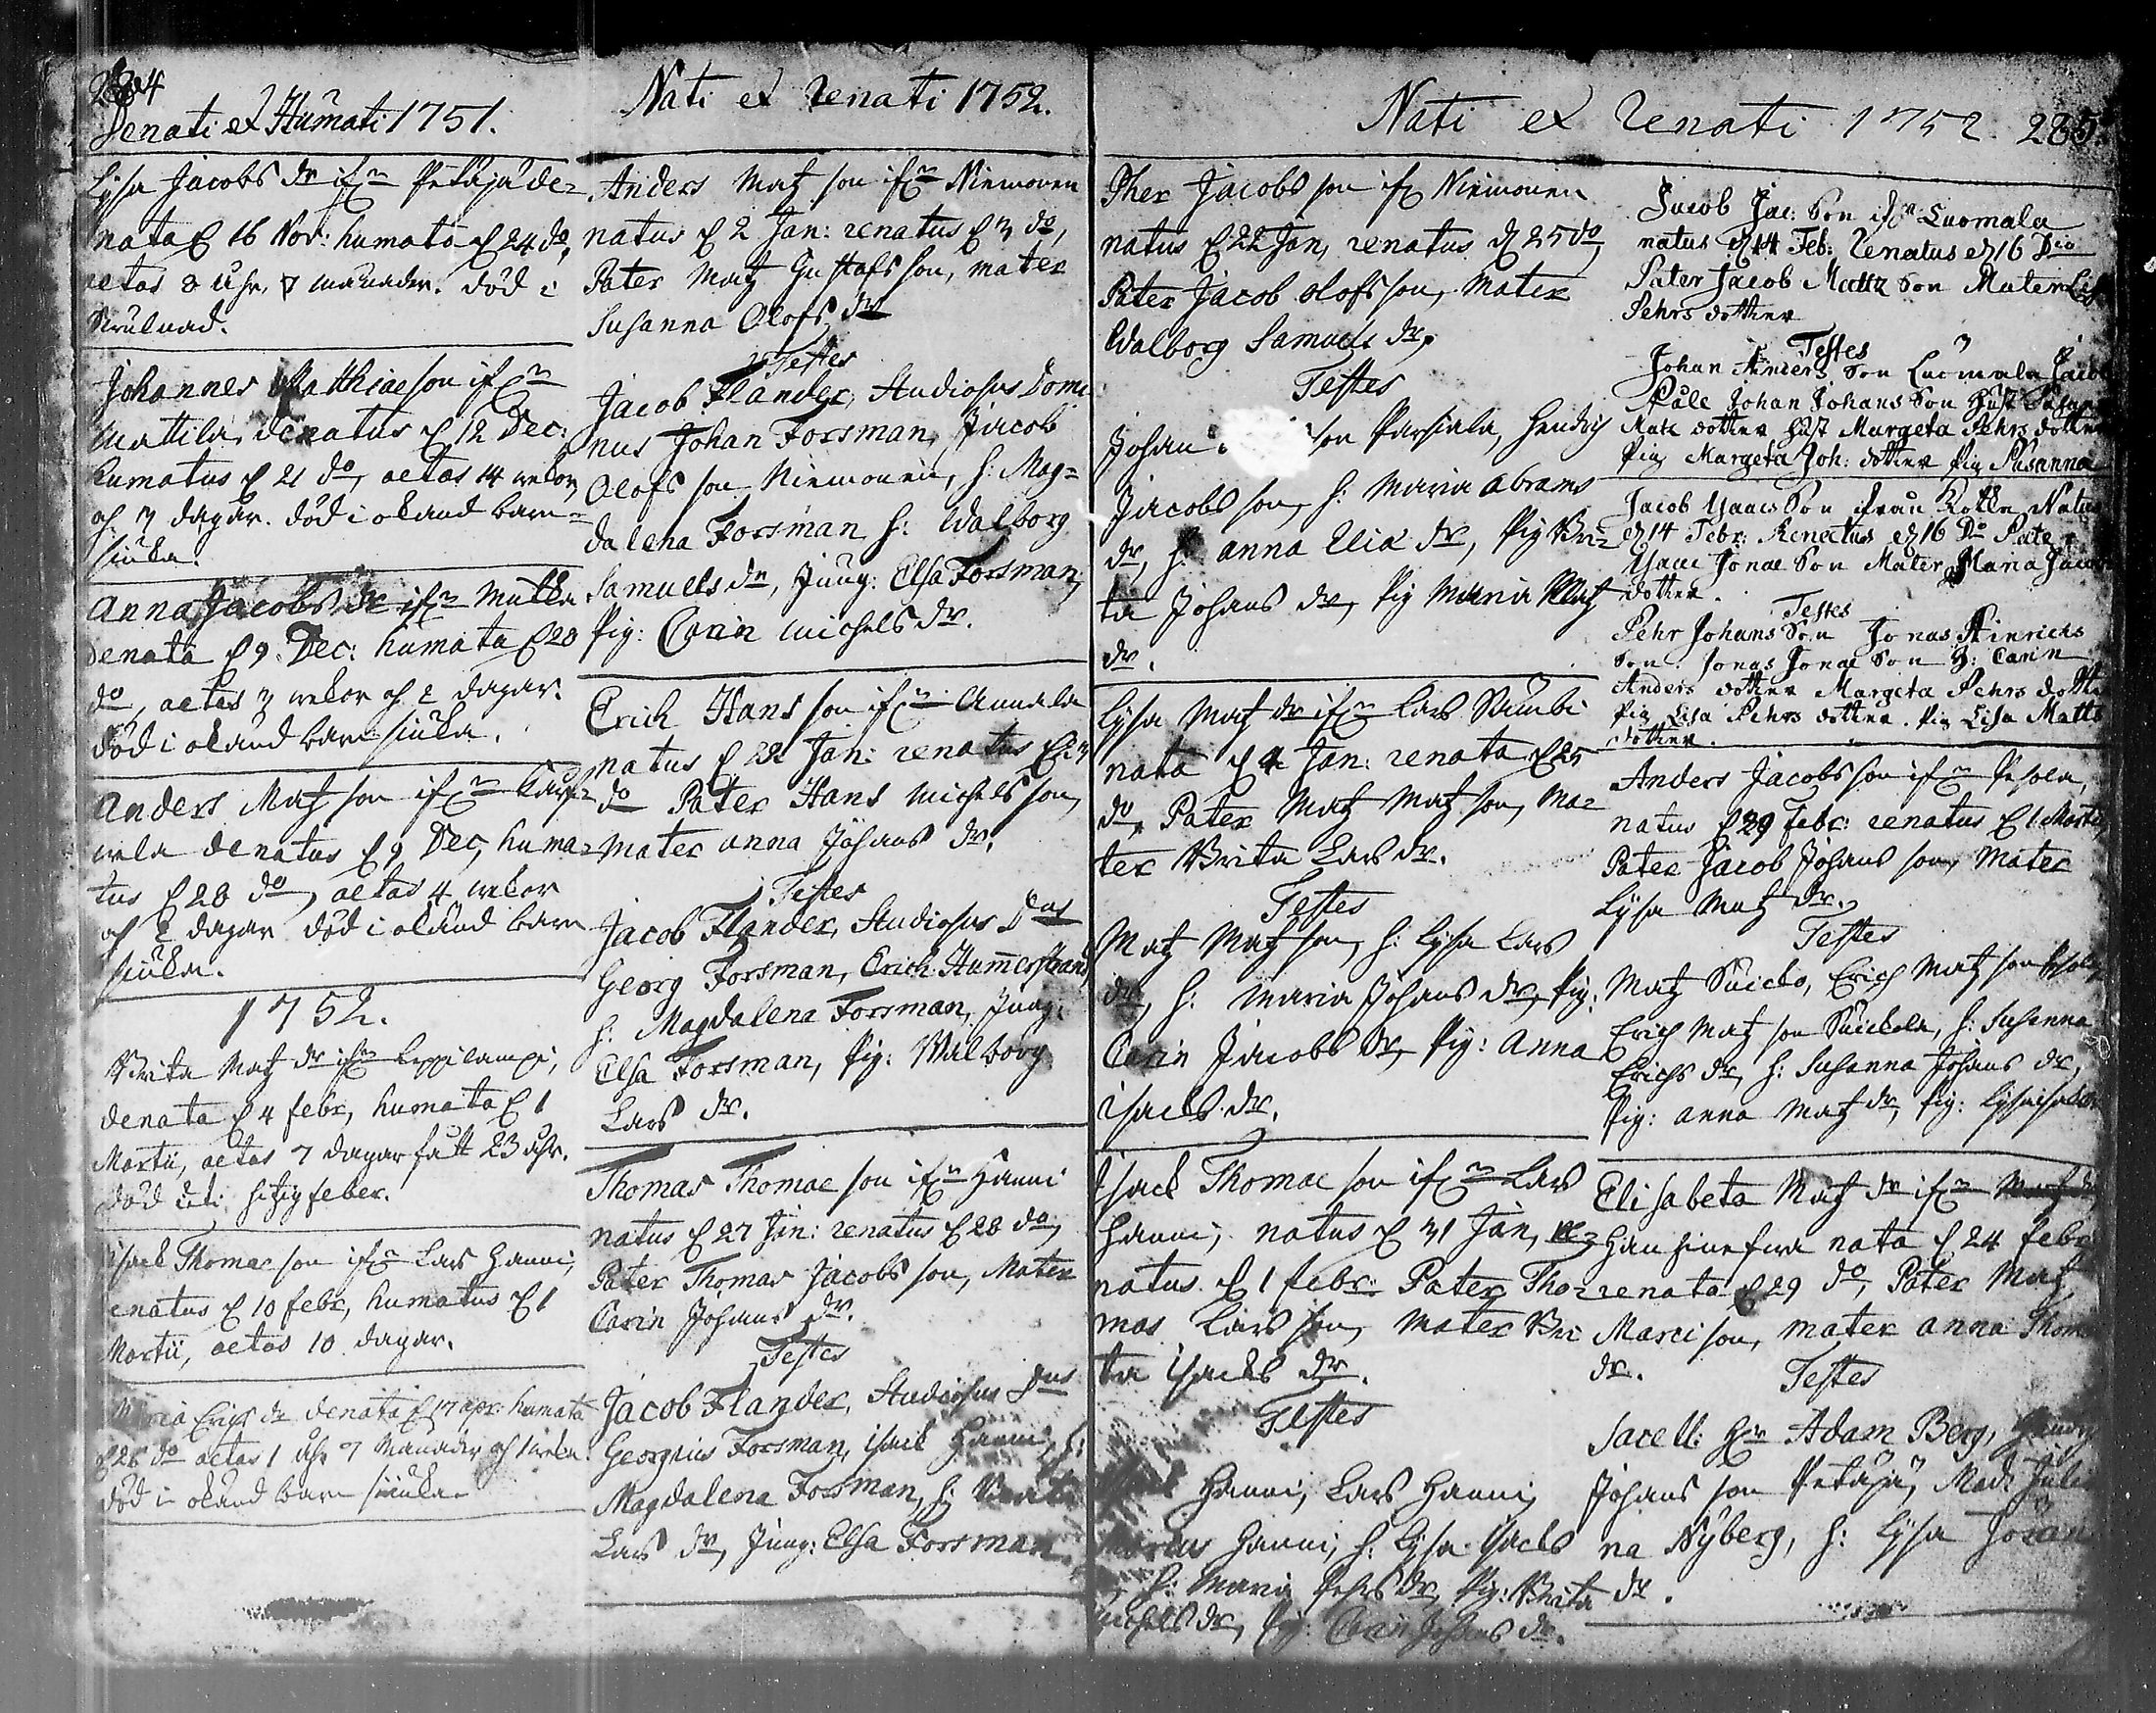 284
Denati et Humati 1751.
Lysa Jacobs dr ifrn Petäjä de=
nata d 16 Nov: humata d 24 do,
aetas 8 åhr, 7 månader. död i
Johannes Matthiae son ifrn
Mattila, denatus d 12 Dec:
humatus d 21 do, aetas 14 wekor
och 3 dagar. död i okänd barn=
siuka.
Anna Jacobs dr ifrn Mattla
denata d 9 Dec: humata d 28
do, aetas 3 wekor och 2 dagar.
död i okänd barn siuka.
Anders Matz son ifrn
denatus d 9 Dec, huma=
tus d 28 do, aetas 4 wekor
och 2 dagar död i okänd barn
siuka.
1752.
Brita Matz dr ifrn Leppilampi,
denata d 4 febr, humata d 1
Martii, aetas 7 dagar fatt 23 åhr.
död uti hitzig feber.
Isack Thomae son ifrn Lars Hanni,
denatus d 10 febr, humatus d 1
Martii, aetas 10 dagar.
Maria Erichs dr denata d 17 apr: humata
d 26 do aetas 1 åhr 7 månader och 1 weka
död i okänd barn siuka
Nati et renati 1752.
Anders Matz son ifrn Niemonen
natus d 2 Jan: renatus d 3 do,
Pater Matz Gustafs son, mater
Susanna Olofs dr
Testes
Jacob Flander, Studiosus Domi
nus Johan Forsman, Jacob
Olofs son Niemonen, h: Mag=
dalena Forsman h: Walborg
Samuels dr, Jung: Elsa Forsman,
Pig: Carin Michels dr.
Erich Hans son ifrn Annala
natus d 22 Jan: renatus d
do Pater Hans Michels son,
mater anna Johans dr.
Testes
Jacob Flander, Studiosus Dns
Georg Forsman, Erich Hammerstrand,
h: Magdalena Forsman, Jung:
Elsa Forsman, Pig: Walborg
Lars dr.
Thomas Thomae son ifrn Hanni
natus d 27 Jan: renatus d 28 do,
Pater Thomas Jacobs son, Mater
Carin Johans dr.
Testes
Jacob Flander, Studiosus Dns
Georgius Forsman, Isack Hanni, h:
Magdalena Forsman, h: Brita
Lars dr, Jung: Elsa Forsman
Nati et renati 1752. 285.
Pher Jacobs son ifrn Niemonen
natus d 22 Jan, renatus d 25 do,
Pater Jacob Olofs son, Mater
Walborg Samuels dr.
Testes
Johan son Parsiala, Hendrich
Jacobs son, h: Maria Abrams
dr, h: anna Elia dr, Pig Bri=
ta Johans dr, Pig Maria Matz
dr.
Lysa Matz dr ifrn Lars Sambi
nata d 4 Jan: renata d 25
do, Pater Matz Matz son, Ma=
ter Brita Lars dr.
Testes
Matz Matz son, h: Lysa Lars
dr, h: Maria Johans dr, Pig:
Carin Jacobs dr, Pig: Anna
Isacks dr.
Isack Thomae son ifrn Lars
Hanni, natus d 31 Jan, re=
natus d 1 febr: Pater Tho=
mas Lars son, mater Bri
ta Isacks dr.
Testes
Hanni, Lars Hanni,
Hanni, h: Lysa Isacks
h: Maria Pehrs dr, Pig: Brita
Michels dr, Pig: Carin Johans dr.
Jacob Jac: Son ifrn Luomala
natus d 14 Feb: Renatus d 16 Dio
Pater Jacob Mattz Son Mater Lisa
Pehrs dotter
Testes
Johan Anders Son Luomala Jacob
Påle Johan Johans Son Hust Susanna
Matz dotter Hust Margeta Pehrs dotter
Pig Margeta Joh: dotter Pig Susanna
Jacob Isaacs Son ifrån Kotka Natus
d 14 Febr: Renatus d 16 Do Pater
Isaac Jonae Son Mater Maria Jacobs
dotter.
Testes
Pehr Johans Son Jonas Hinrichs
son. Jonas Jonae Son H: Carin
Anders dotter Margeta Pehrs dotter
Pig Lisa Pehrs dotter. Pig Lisa Matts
dotter.
Anders Jacobs son ifrn Pesola,
natus d 29 febr: renatus d 1 Martii,
Pater Jacob Johans son, Mater
Lysa Matz dr.
Testes
Matz Suicko, Erich Matz son Pesola,
Erich Matz son Suickola, h: Susanna
Erichs dr, h: Susanna Johans dr,
Pig: anna Matz dr, Pig: Lysa
Elisabeta Matz dr ifrn
nata d 24 febr
renata d 29 do, Pater Matz
Marci son, mater anna Thomae
dr.
Testes
Sacell: Hr Adam Berg, Hendrich
Johans son Petäjä, Mad: Jule
na Nyberg, h: Lysa Jöran
dr.